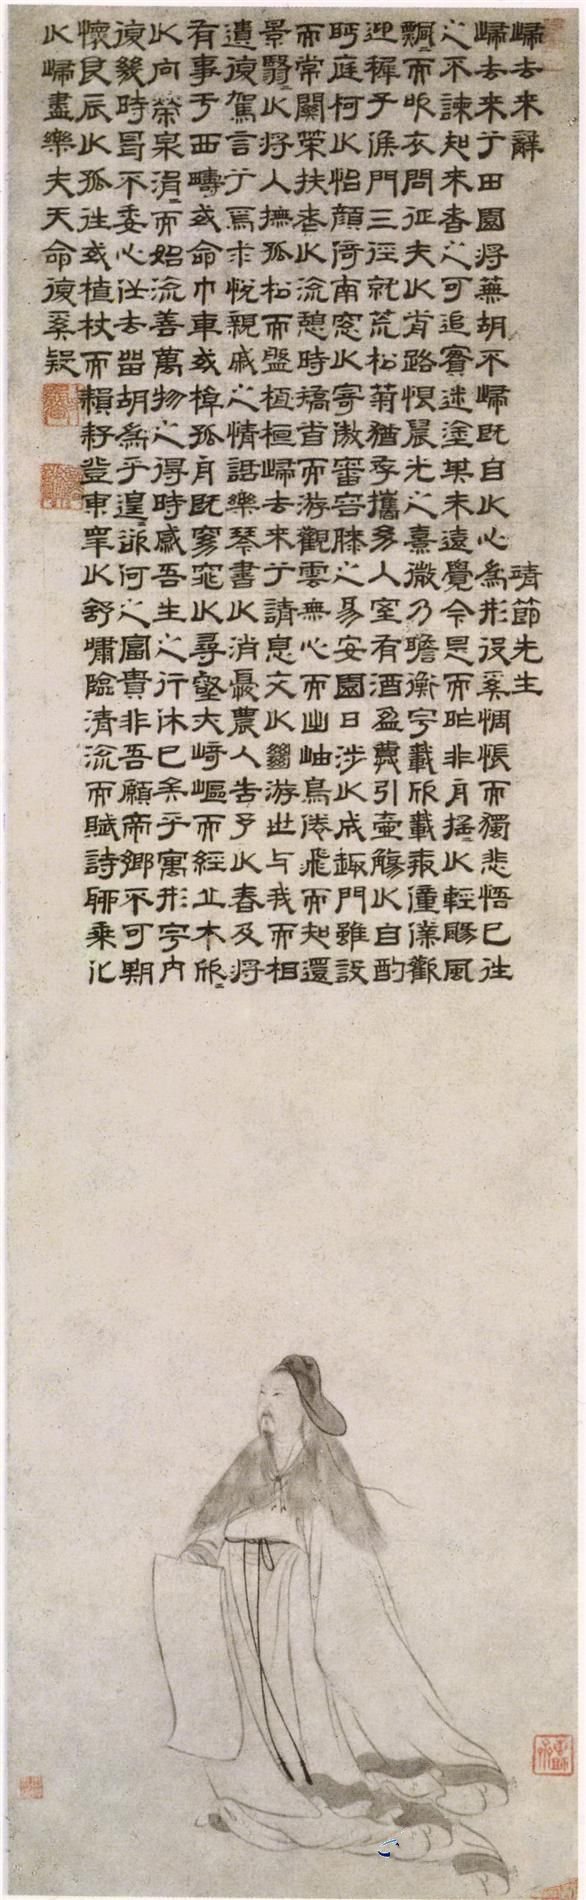 歸去來辭 靖節先生
歸去來兮田園將蕪胡不歸既自以心為形役奚惆悵而獨悲悟已往
之不諫知來者之可追實迷塗其未遠覺今是而昨非舟搖〻以輕颺風
飄〻而吹衣問征夫以前路恨晨光之熹微乃瞻衡宇載欣載奔僮僕歡
迎稚子候門三徑就荒松菊猶存攜幼入室有酒盈樽引壺觴以自酌
眄庭柯以怡顏倚南窓以寄傲審容膝之易安園日涉以成趣門雖設
而常關策扶老以流憩時矯首而游觀雲無心而出岫鳥倦飛而知還
景翳〻以將入撫孤松而盤桓歸去來兮請息交以絕游世与我而相
遺復駕言兮焉求悅親戚之情話樂琴書以消憂農人告予以春及將
有事乎西疇或命巾車或棹孤舟既窈窕以尋壑亦崎嶇而經丘木欣〻
以向榮泉涓〻而始流善萬物之得時感吾生之行休已矣乎寓形宇內
復幾時曷不委心任去留胡為乎遑〻欲何之富貴非吾願帝鄉不可期
懷良辰以孤往或植杖而耘耔登東皋以舒嘯臨清流而賦詩聊乘化
以歸盡樂夫天命復奚疑